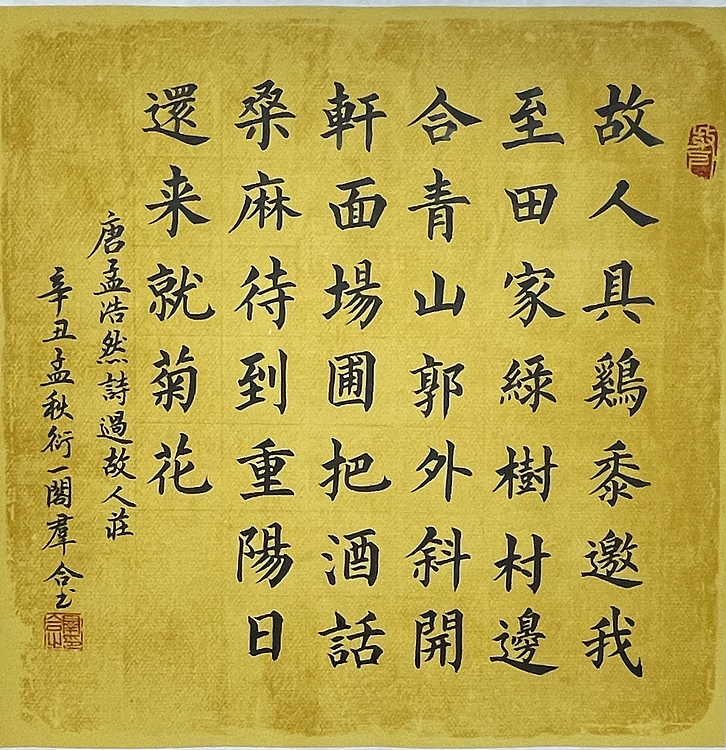 故人具鷄黍邀我
至田家綠樹村邊
合青山郭外斜開
軒面場圃把酒話
桑麻待到重陽日
還来就菊花
唐孟浩然詩過故人莊
辛丑孟秋衍一閣羣合書